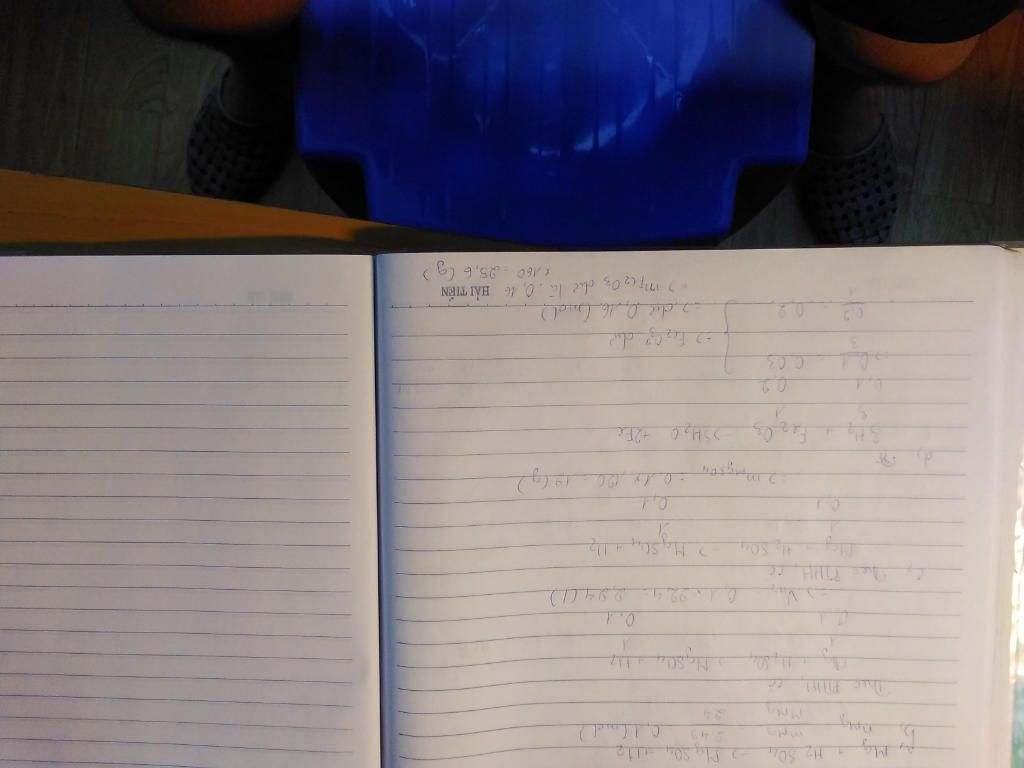 a, Mg + H2SO4 -> MgSO4 + H2
b, nMg = mMg / MMg = 2,43 / 24 = 0,1 (mol)
Theo PTHH, có
Mg + H2SO4 -> MgSO4 + H2
1 1
0,1 0,1
=> VH2 = 0,1 x 22,4 = 2,24 (l)
c, Theo PTHH, có
Mg + H2SO4 -> MgSO4 + H2
1 1
0,1 0,1
=> mMgSO4 = 0,1 x 120 = 12 (g)
d,
3H2 + Fe2O3 -> 3H2O + 2Fe
3 1
0,1 0,2
=> 0,1 / 3 = 0,03
0,2 / 1 = 0,2
=> Fe2O3 dư
=> dư 0,16 (mol)
=> mFe2O3 dư là: 0,16
x 160 = 25,6 (g)
HẢI TIẾN